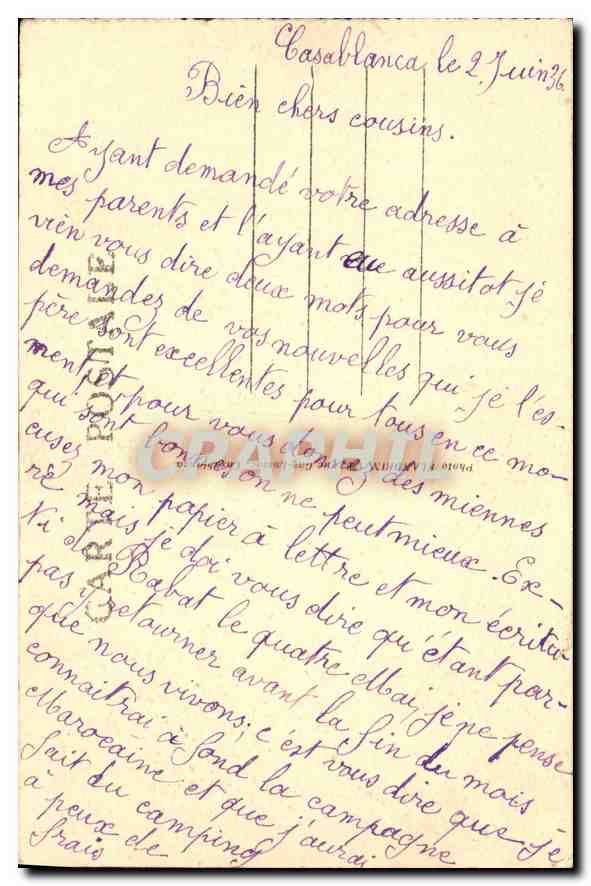 Casablanca, le 2 Juin 36
Bien chers cousins.
Ayant demandé votre adresse à
mes parents et l'ayant eue aussitot je
vien vous dire deux mots pour vous
demandez de vos nouvelles qui je l'es-
père sont excellentes pour tous en ce mo-
ment et pour vous donnez des miennes
qui sont bonnes on ne peut mieux. Ex-
cusez mon papier à lettre et mon écritu-
re mais je doi vous dire qu'étant par-
ti de Rabat le quatre Mai, je ne pense
pas y retourner avant la fin du mois
que nous vivons; c'est vous dire que je
connaitrai à fond la campagne
Marocaine et que j'aurai
fait du camping
à peux de
frais
CARTE POSTALE
CPAPHIL
Photo